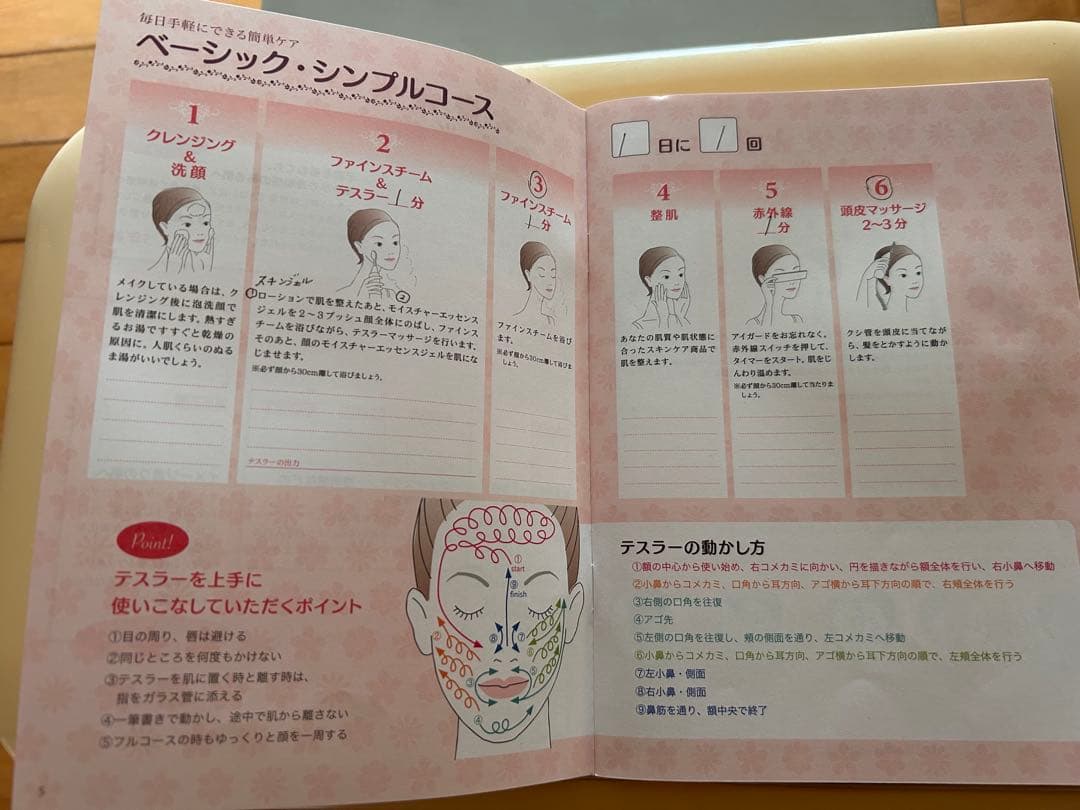 毎日手軽にできる簡単ケア
ベーシック・シンプルコース
1
クレンジング
&
洗顔
メイクしている場合は、ク
レンジング後に泡洗顔で
肌を清潔にします。熱すぎ
るお湯ですすぐと乾燥の
原因に。人肌くらいのぬる
ま湯がいいでしょう。
2
ファインスチーム
&
テスラー 1 分
スキンジェル
①ローションで肌を整えたあと、モイスチャーエッセンス
ジェルを2〜3プッシュ顔全体にのばし、ファインス
チームを浴びながら、テスラーマッサージを行います。
そのあと、顔のモイスチャーエッセンスジェルを肌にな
じませます。
②
※必ず顔から30cm離して浴びましょう。
テスラーの出力
③
ファインスチーム
1 分
ファインスチームを浴び
ます。
※必ず顔から30cm離して浴びま
しょう。
1 日に 1 回
4
整肌
あなたの肌質や肌状態に
合ったスキンケア商品で
肌を整えます。
5
赤外線
1 分
アイガードをお忘れなく、
赤外線スイッチを押して、
タイマーをスタート。肌をじ
んわり温めます。
※必ず顔から30cm離して当たりま
しょう。
⑥
頭皮マッサージ
2〜3分
クシ管を頭皮に当てなが
ら、髪をとかすように動か
します。
Point!
テスラーを上手に
使いこなしていただくポイント
①目の周り、唇は避ける
②同じところを何度もかけない
③テスラーを肌に置く時と離す時は、
指をガラス管に添える
④一筆書きで動かし、途中で肌から離さない
⑤フルコースの時もゆっくりと顔を一周する
①
start
⑨
finish
②
⑧
⑦
⑥
③
⑤
④
テスラーの動かし方
①額の中心から使い始め、右コメカミに向かい、円を描きながら額全体を行い、右小鼻へ移動
②小鼻からコメカミ、口角から耳方向、アゴ横から耳下方向の順で、右頬全体を行う
③右側の口角を往復
④アゴ先
⑤左側の口角を往復し、頬の側面を通り、左コメカミへ移動
⑥小鼻からコメカミ、口角から耳方向、アゴ横から耳下方向の順で、左頬全体を行う
⑦左小鼻・側面
⑧右小鼻・側面
⑨鼻筋を通り、額中央で終了
5